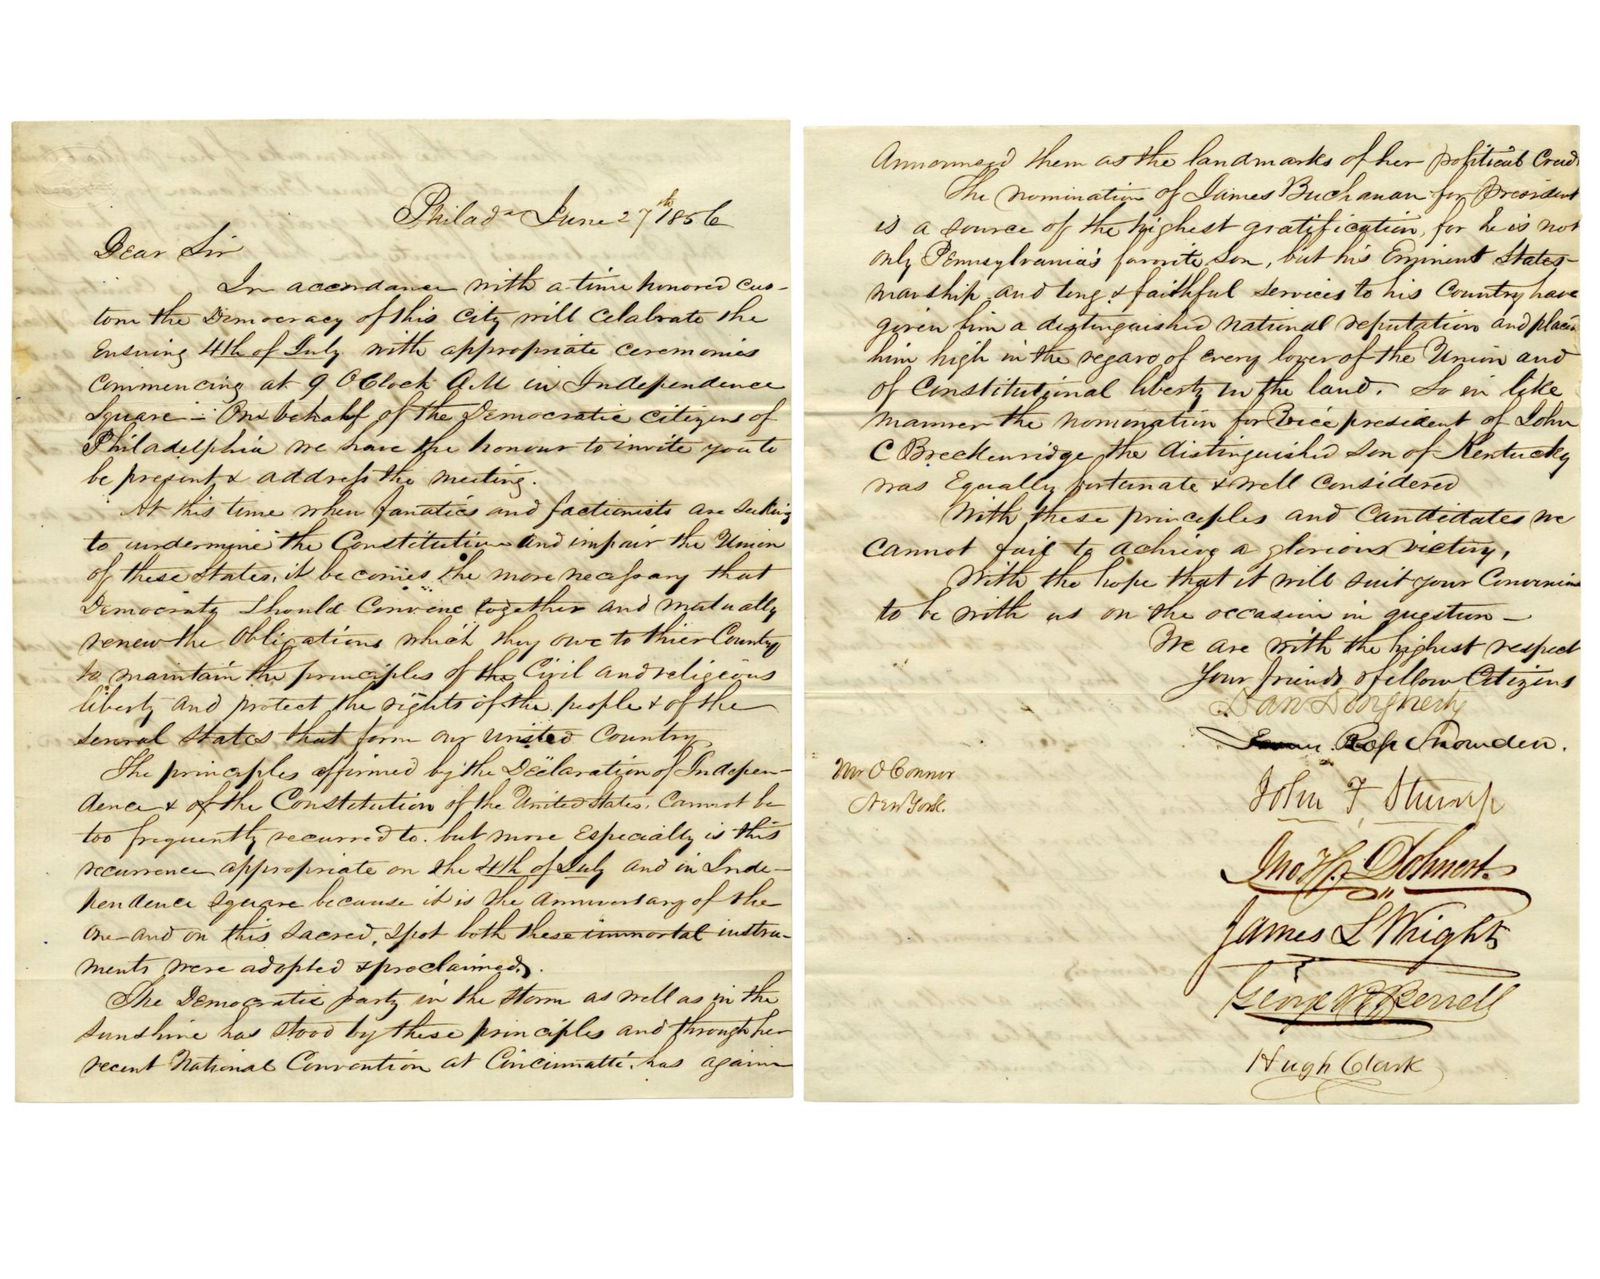 Philada June 27th 1856
Dear Sir
In accordance with a time honored cus-
tom the Democracy of this City will celabrate the
Ensuing 4th of July with appropriate ceremonies
commencing at 9 O Clock A.M in Independence
Square - On behalf of the Democratic citizens of
Philadelphia we have the honour to invite you to
be present & address the meeting.
At this time when fanatics and factionists are seeking
to undermine the Constitution and impair the Union
of these States, it becomes the more necessary that
Democrats should Convene together and mutually
renew the Obligations which they owe to thier Country
to maintain the principles of the Civil and religious
liberty and protect the rights of the people & of the
several States that form our united Country
The principles affirmed by the Declaration of Indepen-
dence & of the Constitution of the United States. Cannot be
too frequently recurred to. but more Especially is this
recurrence appropriate on the 4th of July and in Inde-
pendence Square because it is the Anniversary of the
one - and on this sacred, spot both these immortal instru-
ments were adopted & proclaimed.
The Democratic party in the storm as well as in the
sunshine has stood by these principles and through her
recent National Convention at Cincinnatti. has again
Announced them as the landmarks of her political Creed
The nomination of James Buchanan for President
is a source of the highest gratification, for he is not
only Pennsylvania's favorite son, but his Eminent States-
manship and long & faithful services to his Country have
given him a distinguished national reputation and placed
him high in the regard of every lover of the Union and
of Constitutional liberty in the land. So in like
manner the nomination for Vice president of John
C Breckenridge the distinguished son of Kentucky
was Equally fortunate & well considered
With these principles and Candidates we
cannot fail to achieve a glorious victory,
With the hope that it will suit your Convenience
to be with us on the occasion in question -
We are with the highest respect
Your friends & fellow Citizens
Dan Dougherty
Ross Snowden.
Mr O Connor
New York.
John F Stump
Jno H. Dohnert
James L Wright
George R Berrell
Hugh Clark